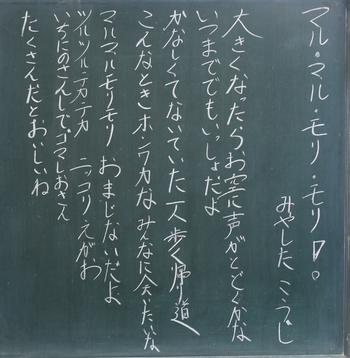 マル・マル・モリ・モリ!。
みやした こうじ
大きくなったらお空に声がとどくかな
いつまででもいっしょだよ
かなしくてないていた一人歩く帰り道
こんなときホンワカなみなに会いたいな
マルマルモリモリ おまじないだよ
ツルツル テカテカ ニッコリえがお
いちにのさんしでゴマしおさえ
たくさんだとおいしいね